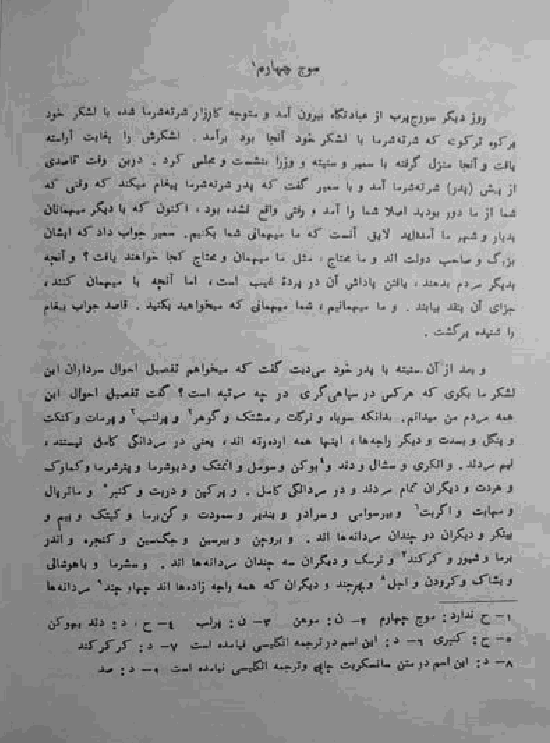 موج چهارم۱
روز دیگر سورج‌پرب از عبادتگاه بیرون آمد و متوجه کارزار شرته‌شرما شده با لشکر خود
برکوه ترکوت که شرته‌شرما با لشکر خود آنجا بود برآمد. لشکرش را بغایت آراسته
یافت و آنجا منزل گرفته با سمیر و سنیته و وزرا بنشست و مجلس کرد. درین وقت قاصدی
از پیش (پدر) شرته‌شرما آمد و با سمیر گفت که پدر شرته‌شرما پیغام میکند که وقتی که
شما از ما دور بودید اصلا شما را آمد و رفتی واقع نشده بود، اکنون که با دیگر میهمانان
بدیار و شهر ما آمده‌اید لایق آنست که ما میهمانی شما بکنیم. سمیر جواب داد که ایشان
بزرگ و صاحب دولت اند و ما محتاج، مثل ما میهمان و محتاج کجا خواهند یافت؟ و آنچه
بدیگر مردم بدهند، یافتن پاداش آن در پردهٔ غیب است، اما آنچه با میهمان کنند،
جزای آن بنقد بیابند. و ما میهمانیم، شما میهمانی که میخواهید بکنید. قاصد جواب پیغام
را شنیده برگشت.
و بعد از آن سنیته با پدر خود می‌دیت گفت که میخواهم تفصیل احوال سرداران این
لشکر ما بگوی که هرکس در سپاهی‌گری در چه مرتبه است؟ گفت تفصیل احوال این
همه مردم من میدانم. بدانکه سوباه و نرکات و مشتک و گوهر۲ و پرلنب۳ و پرمات و کنکت
و پنگل و بسدت و دیگر راجه‌ها، اینها همه ارده‌رته اند، یعنی در مردانگی کامل نیستند،
نیم مردند. و انکری و بشال و دند و۴ بوکن و سومل و انمتک و دیوشرما و پترشرما و کمارک
و هردت و دیگران تمام مردند و در مردانگی کامل. و پرکپن و درپت و کنبر۵ و ماترپال
و مهابت و اگربت۶ و بیرسوامی و سرادو و بندیر و سمودت و گن‌برما و کیتک و بیم و
بینکر و دیگران دو چندان مردانه‌ها اند. و بروچن و بیرسین و جگ‌سین و کنجره و اندر
برما و شیور و کرکند۷ و نرسک و دیگران سه چندان مردانه‌ها اند. و سشرما و باهوشالی
و بشاک و کرودن و اجل۸ و پهرچند و دیگران که همه راجه زاده‌ها اند چهار چند۹ مردانه‌ها
۱- ح ندارد: موج چهارم ۲- ن: موهن ۳- ن: پرلب ۴- ح، د: دند بهوکن
۵- ح: کنبری ۶- د: این اسم در ترجمه انگلیسی نیامده است ۷- د: کرکرکند
۸- د: این اسم در متن سانسکریت چاپی و ترجمه انگلیسی نیامده است ۹- د: صد